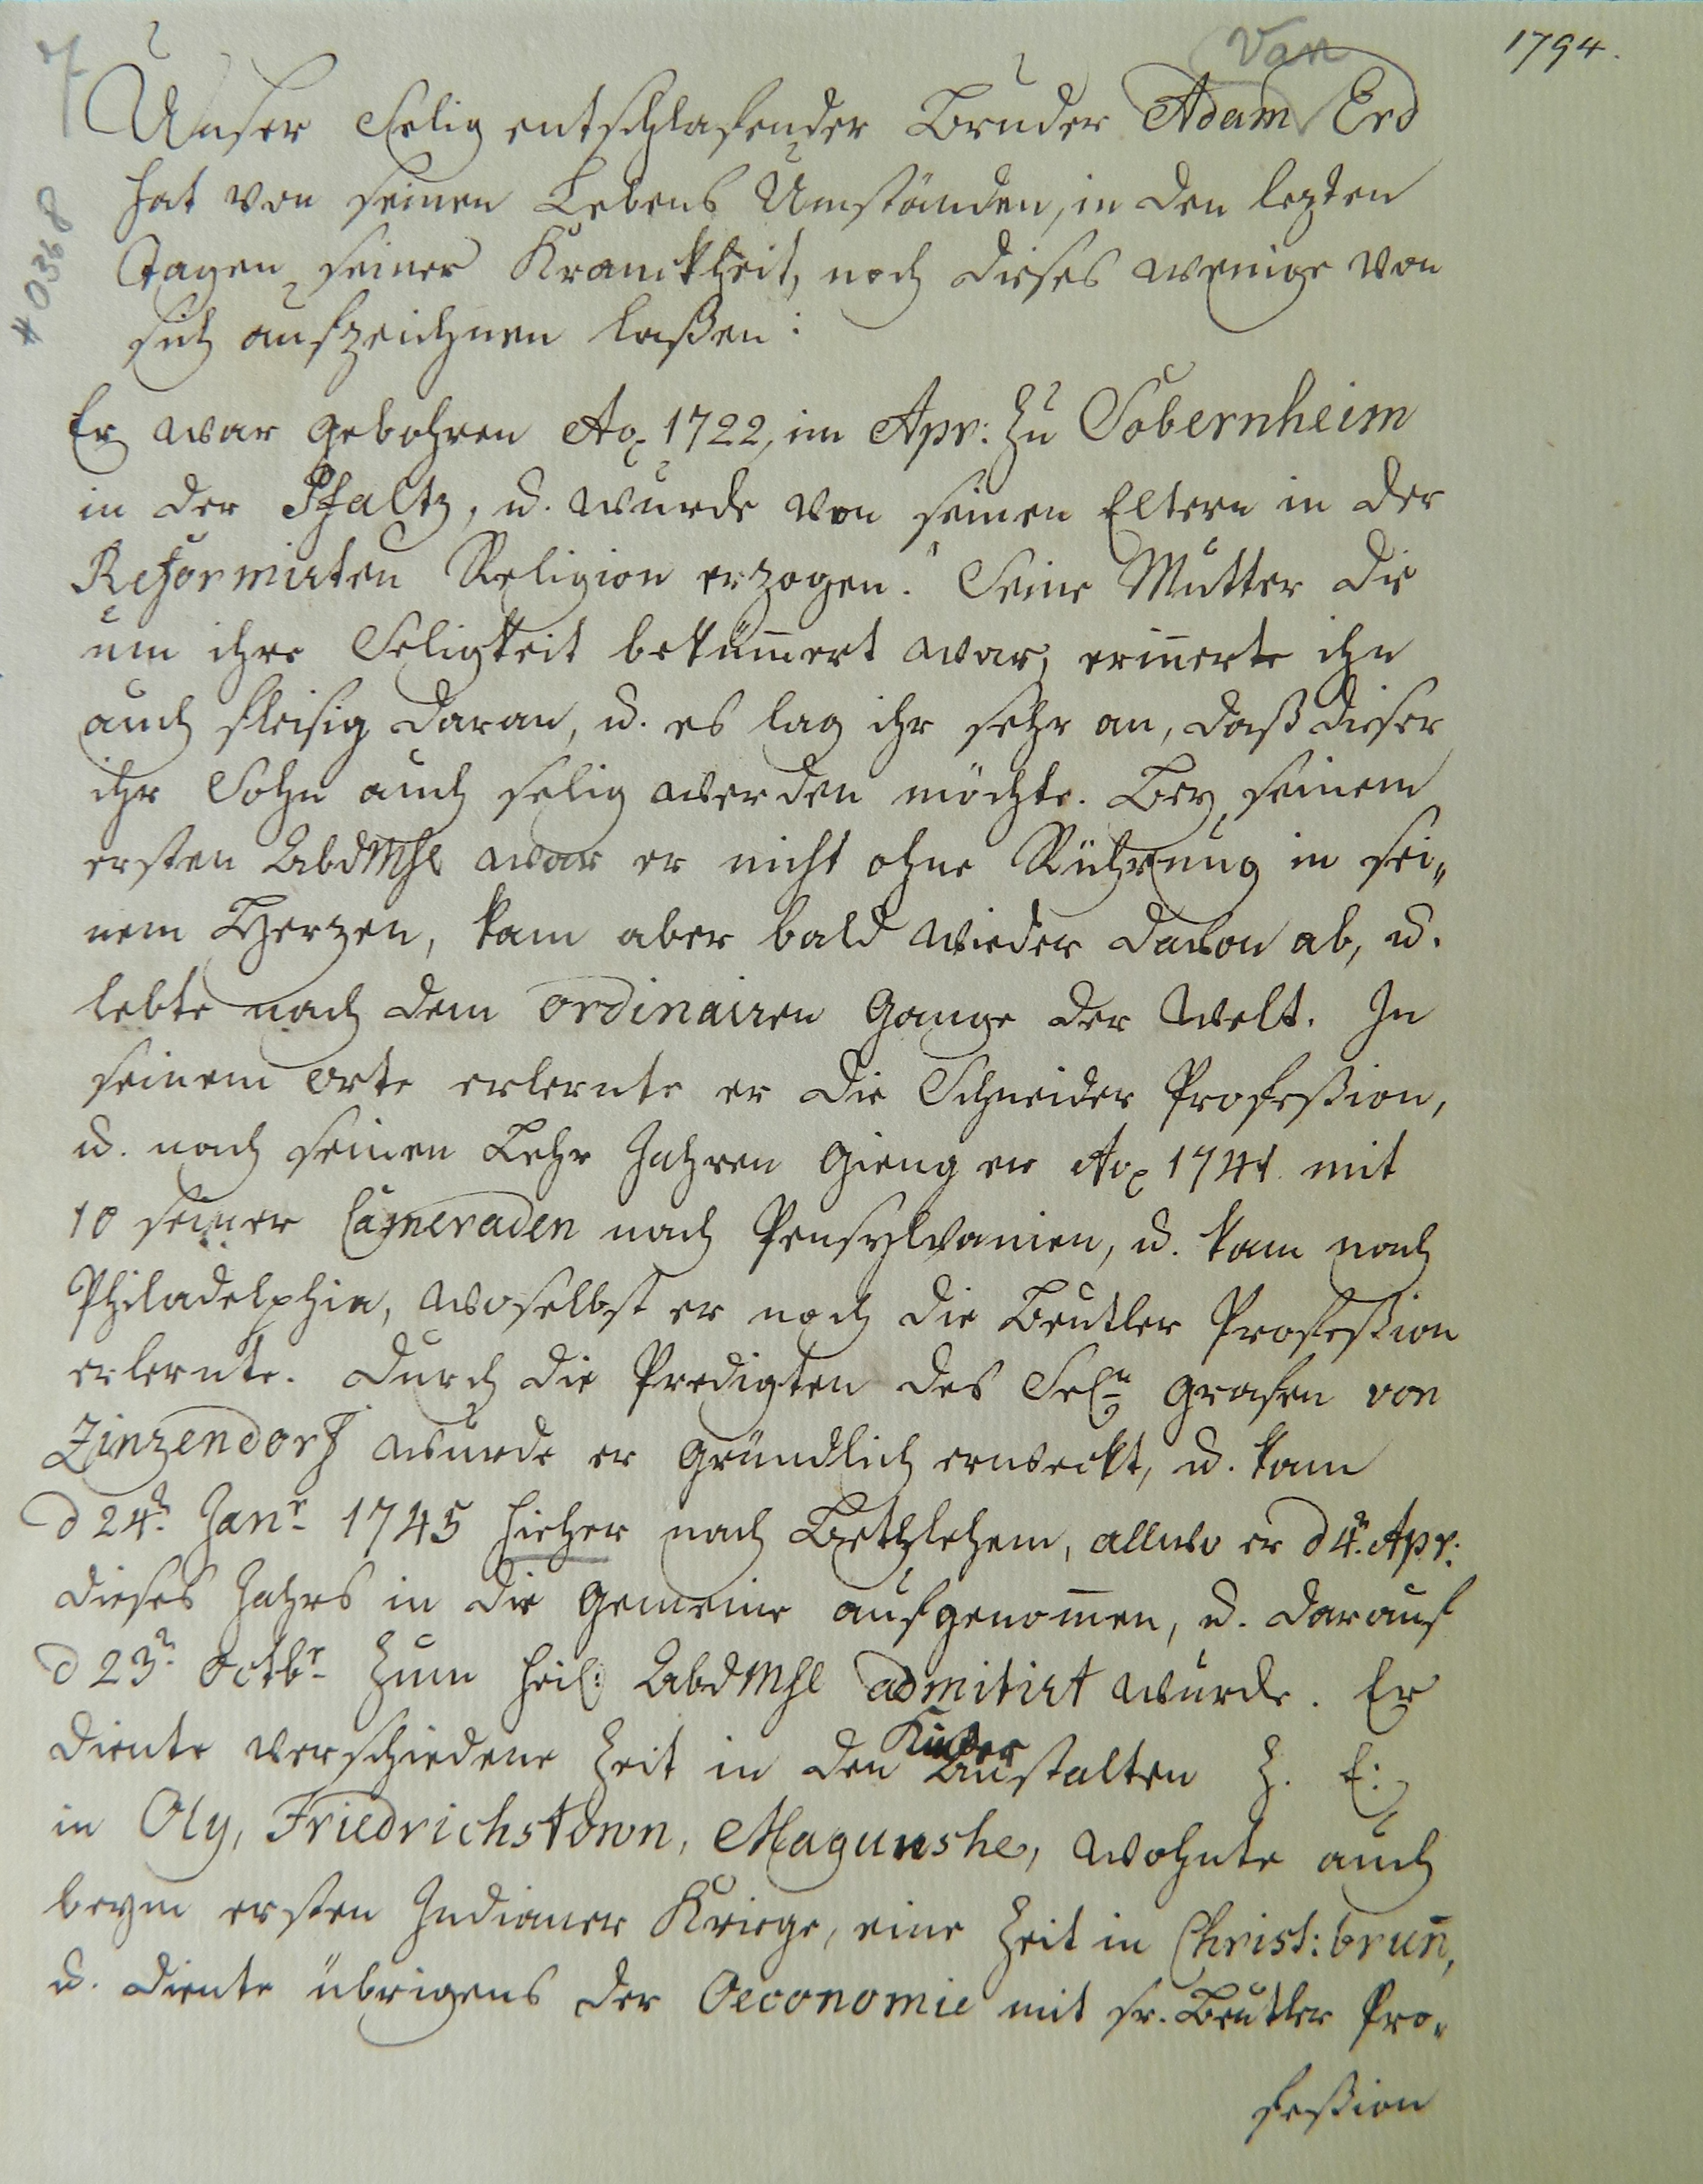 7
Van
1794.
# 0368
Unser Selig entschlafender Bruder Adam Erd
hat von seinen Lebens Umständen, in den lezten
Tagen seiner Kranckheit, noch dieses wenige von
sich aufzeichnen laßen:
Er war gebohren Ao 1722, im Apr: zu Sobernheim
in der Pfaltz, u. wurde von seinen Eltern in der
Reformirten Religion erzogen. Seine Mutter die
um ihre Seligkeit bekümert war, erinerte ihn
auch fleisig daran, u. es lag ihr sehr an, daß dieser
ihr Sohn auch selig werden möchte. Bey seinem
ersten AbdMhl war er nicht ohne Rührung in sei„
nem Herzen, kam aber bald wieder davon ab, u.
lebte nach dem ordinairen Gange der Welt. In
seinem Orte erlernte er die Schneider Profeßion,
u. nach seinen Lehr Jahren gieng er Ao 1741 mit
10 seiner Cameraden nach Pensylvanien, u. kam nach
Philadelphia, woselbst er noch die Beutler Profeßion
erlernte. Durch die Predigten des Seln Grafen von
Zinzendorf wurde er gründlich erweckt, u. kam
d 24n Janr 1745 hieher nach Bethlehem, allwo er d 4n Apr:
dieses Jahrs in die Gemeine aufgenomen, u. darauf
d 23n Octbr zum heil: AbdMhl admitirt wurde. Er
diente verschiedene Zeit in den Kinder Anstalten z. E:
in Oly, Friedrichstown, Magunshe, wohnte auch
beym ersten Indianer Kriege, eine Zeit in Christ:brun,
u. diente übrigens der Oeconomie mit sr. Beutler Pro„
feßion